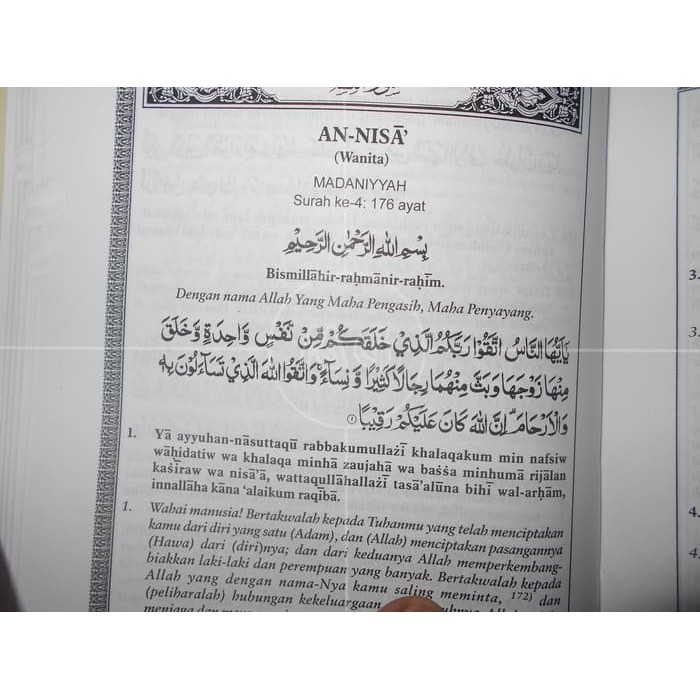 AN-NISĀ'
(Wanita)
MADANIYYAH
Surah ke-4: 176 ayat
بِسْمِ اللهِ الرَّحْمٰنِ الرَّحِيْمِ
Bismillāhir-raḥmānir-raḥīm.
Dengan nama Allah Yang Maha Pengasih, Maha Penyayang.
يٰٓاَيُّهَا النَّاسُ اتَّقُوْا رَبَّكُمُ الَّذِيْ خَلَقَكُمْ مِّنْ نَّفْسٍ وَّاحِدَةٍ وَّخَلَقَ
مِنْهَا زَوْجَهَا وَبَثَّ مِنْهُمَا رِجَالًا كَثِيْرًا وَّنِسَاۤءً ۚ وَاتَّقُوا اللهَ الَّذِيْ تَسَاۤءَلُوْنَ بِهٖ
وَالْاَرْحَامَ ۗ اِنَّ اللهَ كَانَ عَلَيْكُمْ رَقِيْبًا ۝١
1. Yā ayyuhan-nāsuttaqū rabbakumullażī khalaqakum min nafsiw
wāḥidatiw wa khalaqa minhā zaujahā wa baṡṡa minhumā rijālan
kaṡīraw wa nisā'ā, wattaqullāhallażī tasā'alūna bihī wal-arḥām,
innallāha kāna 'alaikum raqībā.
1. Wahai manusia! Bertakwalah kepada Tuhanmu yang telah menciptakan
kamu dari diri yang satu (Adam), dan (Allah) menciptakan pasangannya
(Hawa) dari (diri)nya; dan dari keduanya Allah memperkembang-
biakkan laki-laki dan perempuan yang banyak. Bertakwalah kepada
Allah yang dengan nama-Nya kamu saling meminta, 172) dan
(peliharalah) hubungan kekeluargaan
menjaga dan
3.
3.
4.
4.